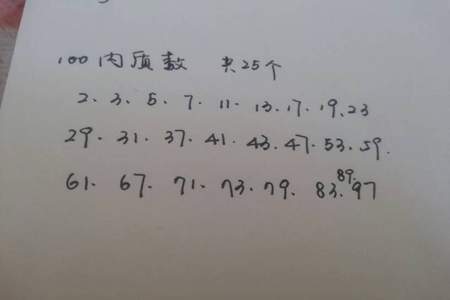 100内质数 共25个
2、3、5、7、11、13、17、19、23
29、31、37、41、43、47、53、59、
61、67、71、73、79、83、89、97